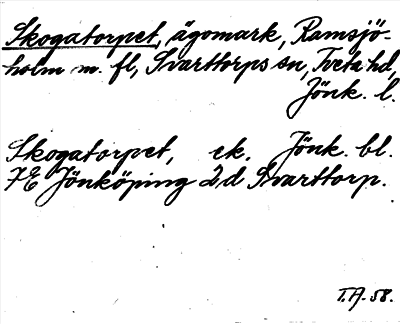 Skogatorpet, ägomark, Ramsjö-
holm m. fl, Svarttorps sn, Tveta hd,
Jönk. l.
Skogatorpet, ek. Jönk. bl.
7E Jönköping 2d Svarttorp.
T.A. 58.